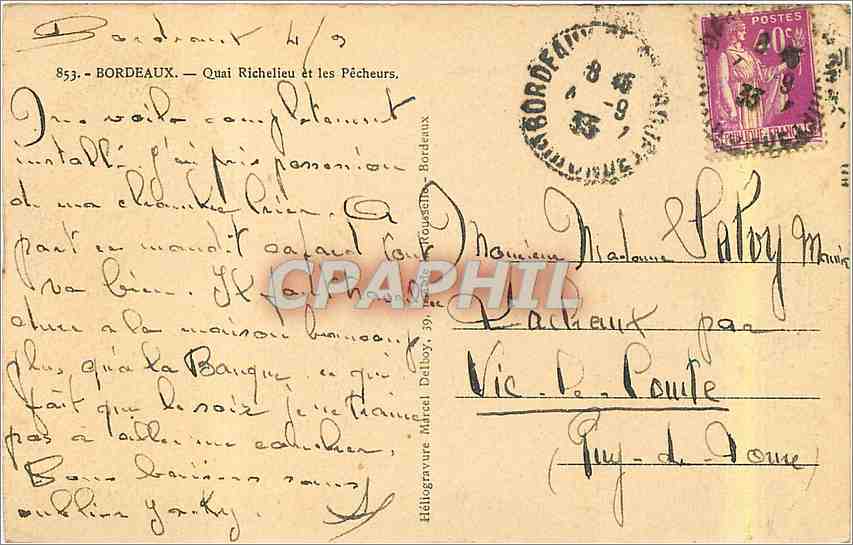 Bordeaux 4/9
853. - BORDEAUX. — Quai Richelieu et les Pêcheurs.
Me voila completement
installé. J'ai pris possession
de ma chambre hier. A
part ce maudit cafard tout
va bien. Il faut travailler
dur à la maison beaucoup
plus qu'à la Banque, ce qui
fait que le soir je ne traine
pas à aller me coucher.
Bons baisers sans
oublier
Héliogravure Marcel Delboy, 39, Rousselle, Bordeaux
BORDEAUX
8 45
4 -9
33
POSTES
40c
Monsieur Madame
Lacheaux par
Vic-Le-Comte
(Puy-de-Dome)
CPAPHIL